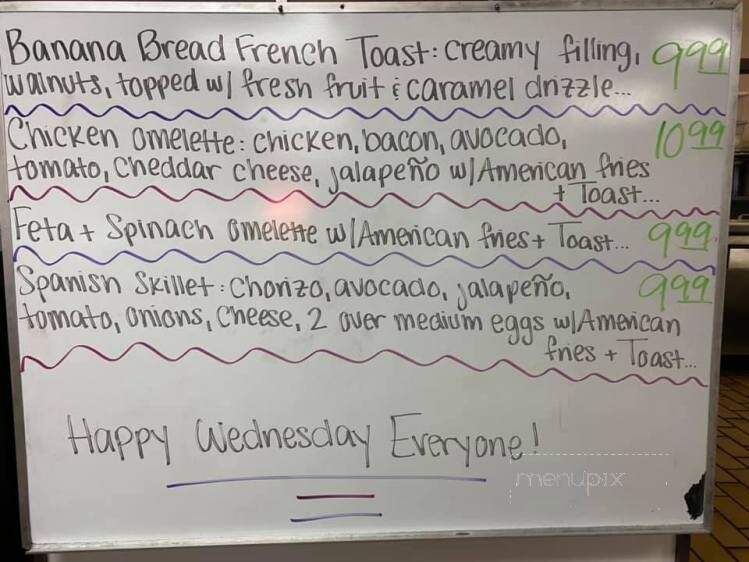 Banana Bread French Toast: creamy filling, 9 99
walnuts, topped w/ fresh fruit & caramel drizzle...
Chicken omelette: chicken, bacon, avocado, 10 99
tomato, cheddar cheese, jalapeño w/American fries
+ Toast...
Feta + Spinach omelette w/American fries + Toast... 9 99
Spanish Skillet: Chorizo, avocado, jalapeño, 9 99
tomato, onions, cheese, 2 over medium eggs w/American
fries + Toast...
Happy Wednesday Everyone!
menupix